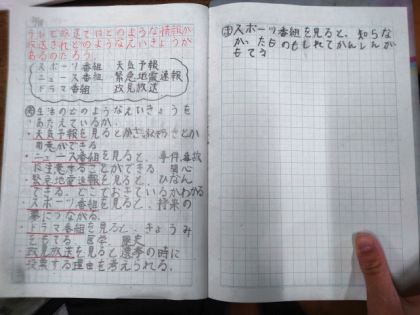 テレビ放送ではどのような情報が
放送されどのようなえいきょうが
あるのだろう。
スポーツ番組 天気予報
ニュース番組 緊急地震速報
ドラマ番組 政見放送
どのようなえいきょうを
あたえているか。
・天気予報を見ると かさ
用意ができる
・ニュース番組を見ると、事件、事故
に注意することができる 関心
緊急地震速報を見ると、ひなん
できる。どこでおきているかわかる
スポーツ番組を見ると、将来の
夢につながる。
・ドラマ番組を見ると、きょうみ
をもてる 医学 歴史
政見放送を見ると選挙の時に
投票する理由を考えられる。
スポーツ番組を見ると、知らな
かったものもしれてかんしんが
もてる